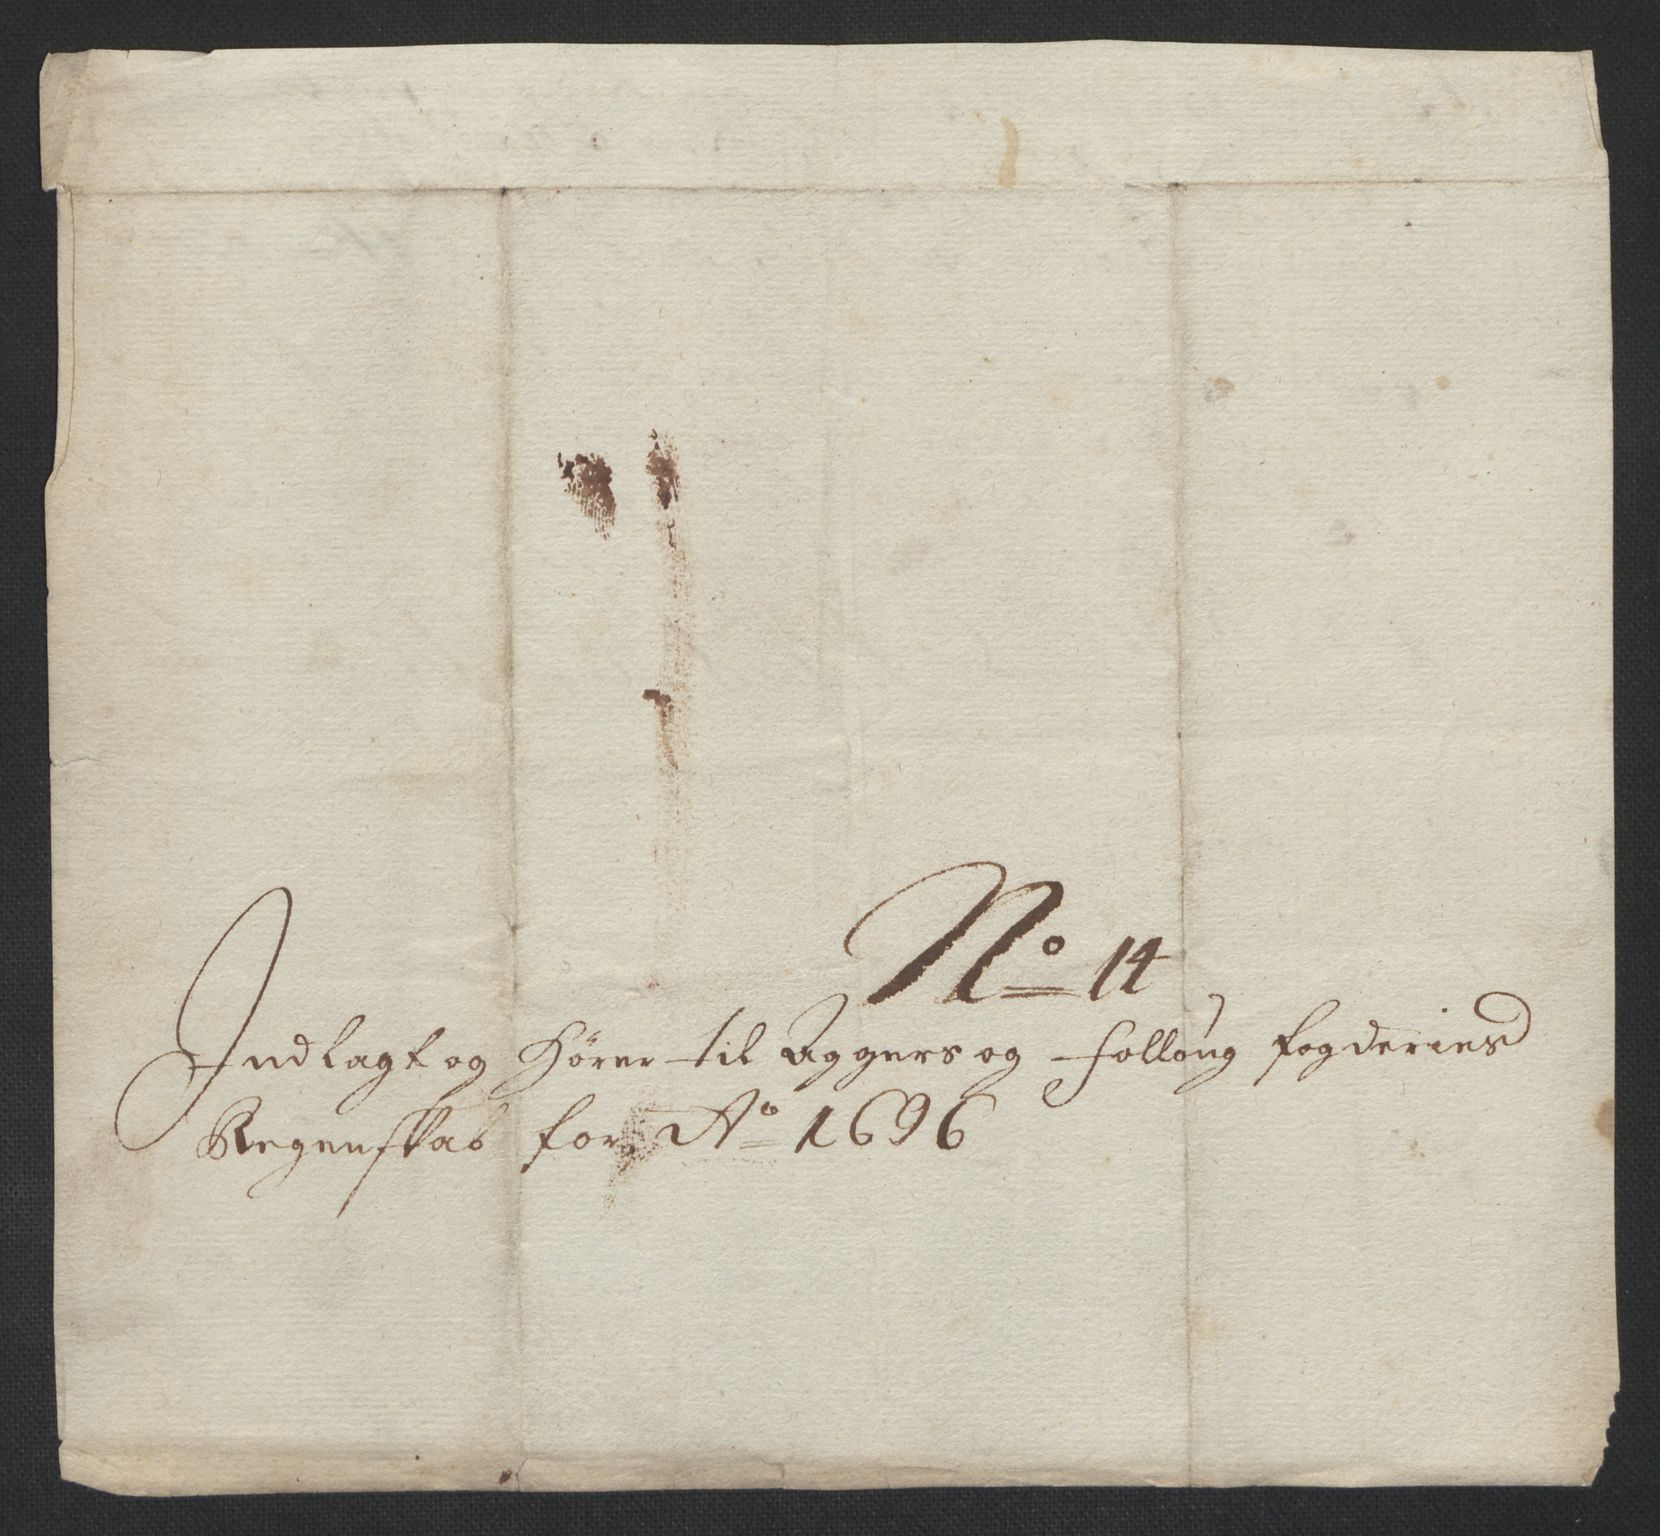 No 14
Indlagt og Hører til Aggers og Follöug fogderies
Regenskab for Ao 1696